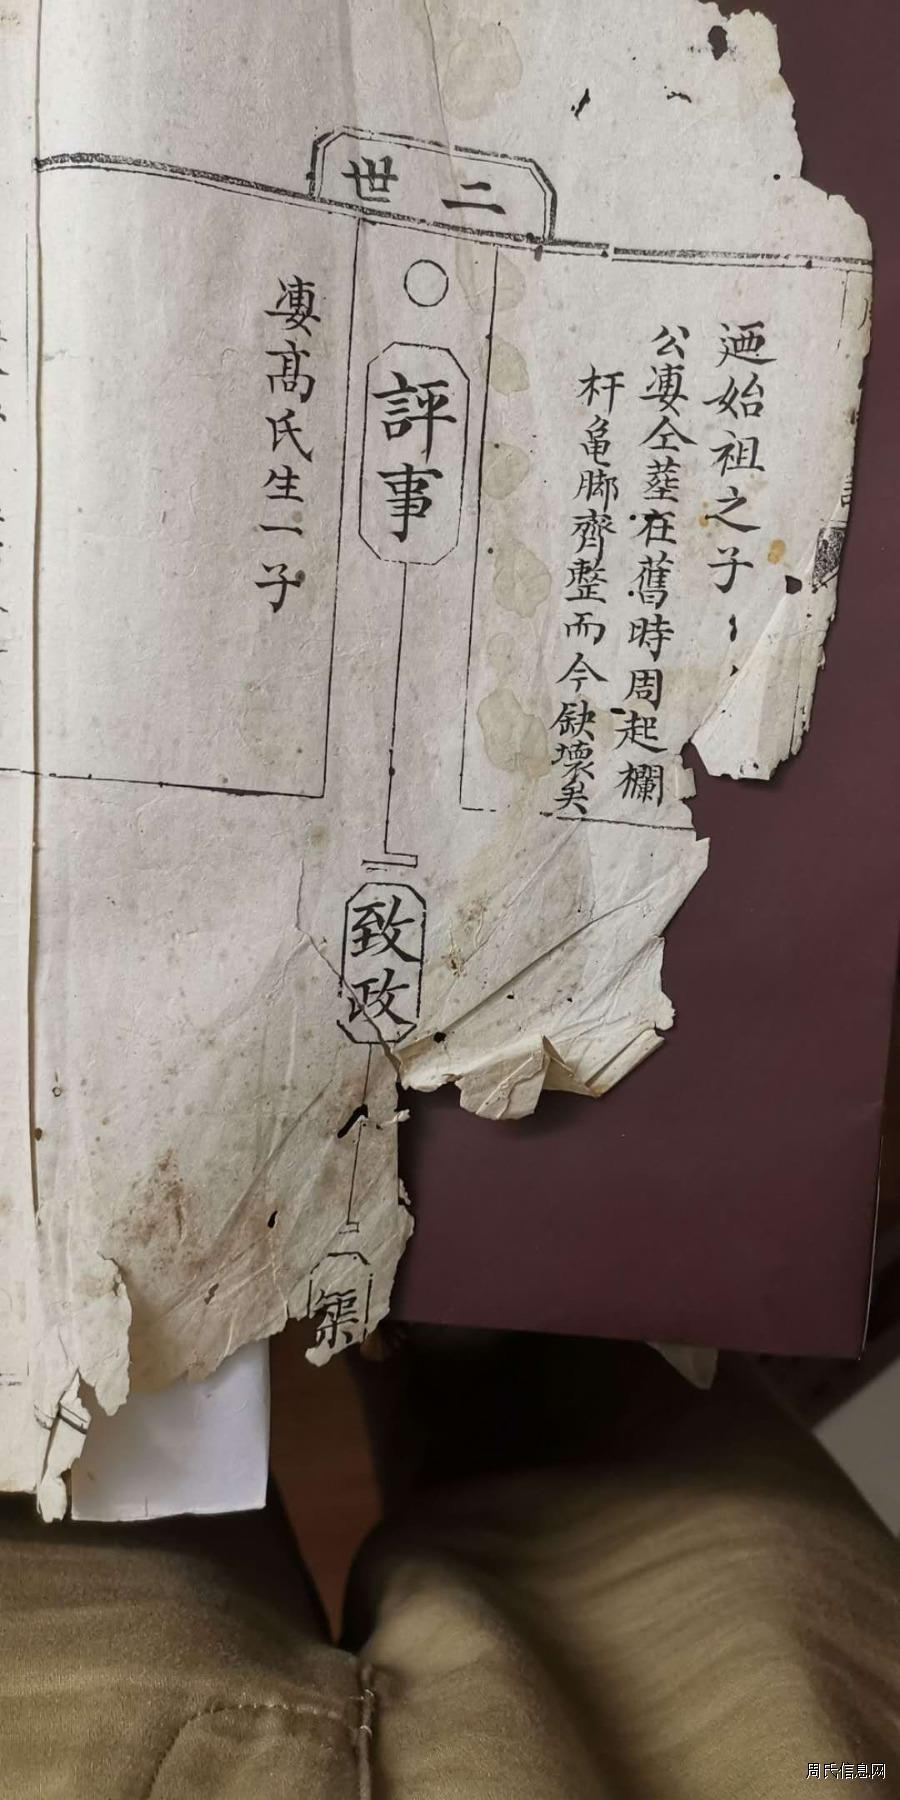 二世
廼始祖之子
公妻仝塟在舊時周起欄
杆龟脚齊整而今缺壞矣
評事
致政
二
築
妻高氏生一子
周氏信息网